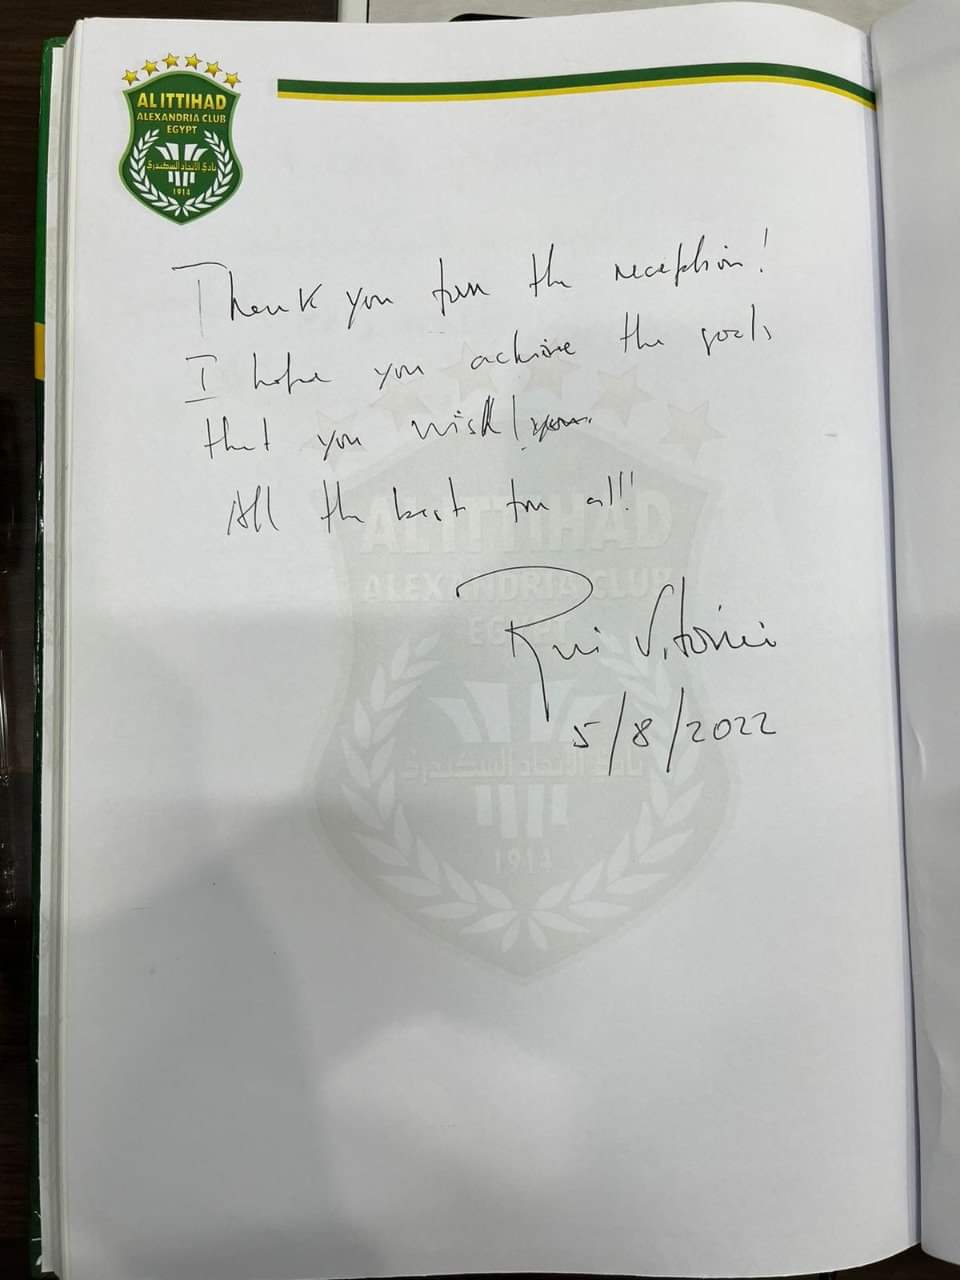 AL ITTIHAD
ALEXANDRIA CLUB
EGYPT
نادي الاتحاد السكندري
1914
Thank you for the reception!
I hope you achieve the goals
that you wish!
All the best for all!!
Rui Vitória
5/8/2022
AL ITTIHAD
ALEXANDRIA CLUB
EGYPT
نادي الاتحاد السكندري
1914